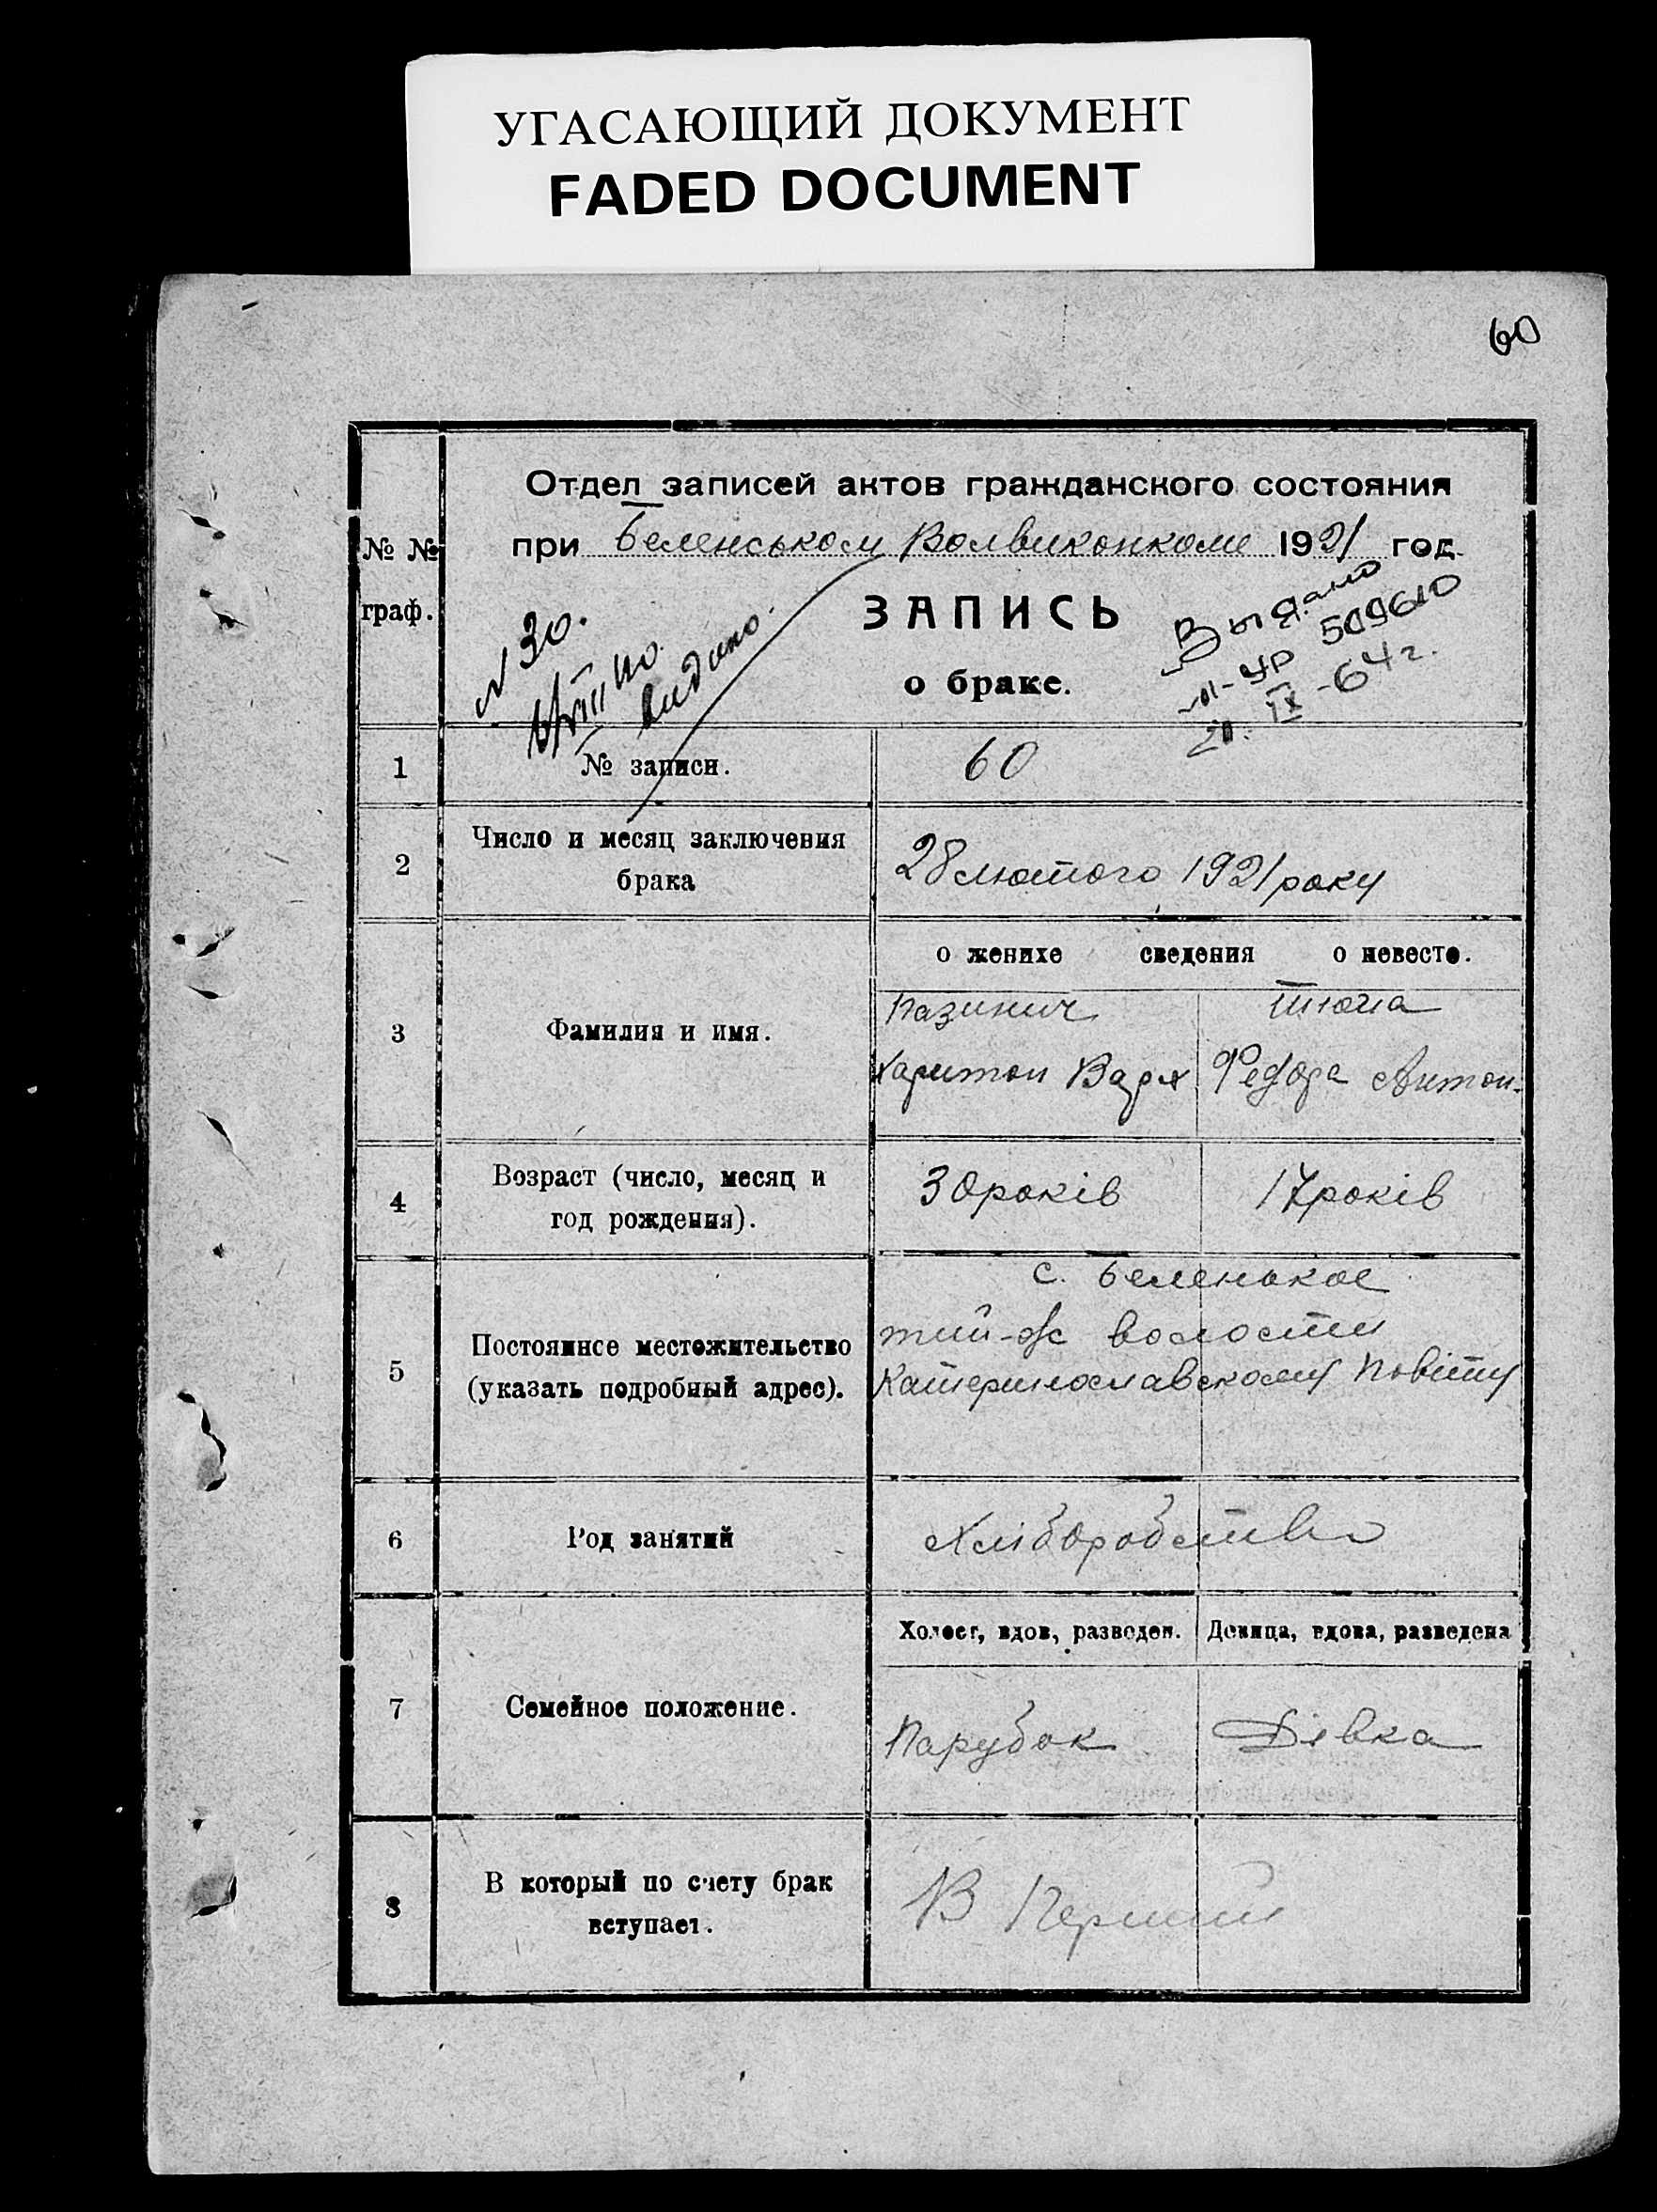 УГАСАЮЩИЙ ДОКУМЕНТ
FADED DOCUMENT
60
№ №
граф.
Отдел записей актов гражданского состояния
при Беленськом Волвиконкоме 1921 год
ЗАПИСЬ
о браке.
№ 30.
видано.
Выдано
509610
IX - 64 г.
1
№ записи.
60
2
Число и месяц заключения
брака
28 лютого 1921 року
о женихе сведения о невесте.
3
Фамилия и имя.
Казинич
Харитон Варх
Тюпа
Федора Антон.
4
Возраст (число, месяц и
год рождения).
30 років
17 років
5
Постоянное местожительство
(указать подробный адрес).
с. Беленькое
тий-ж волости
Катеринославскому Повіту
6
Род занятий
Хліборобство
Холост, вдов, разведен.
Девица, вдова, разведена
7
Семейное положение.
Парубок
Дівка
8
В который по счету брак
вступает.
В Перший